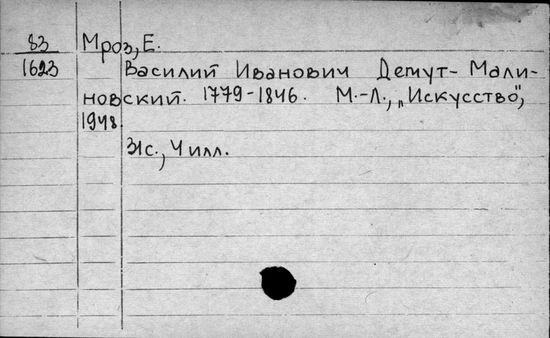 83 Мроз, Е.
1623 Василий Иванович Демут-Мали-
новский. 1779-1846. М.-Л., „Искусство",
1948.
31с., Чилл.